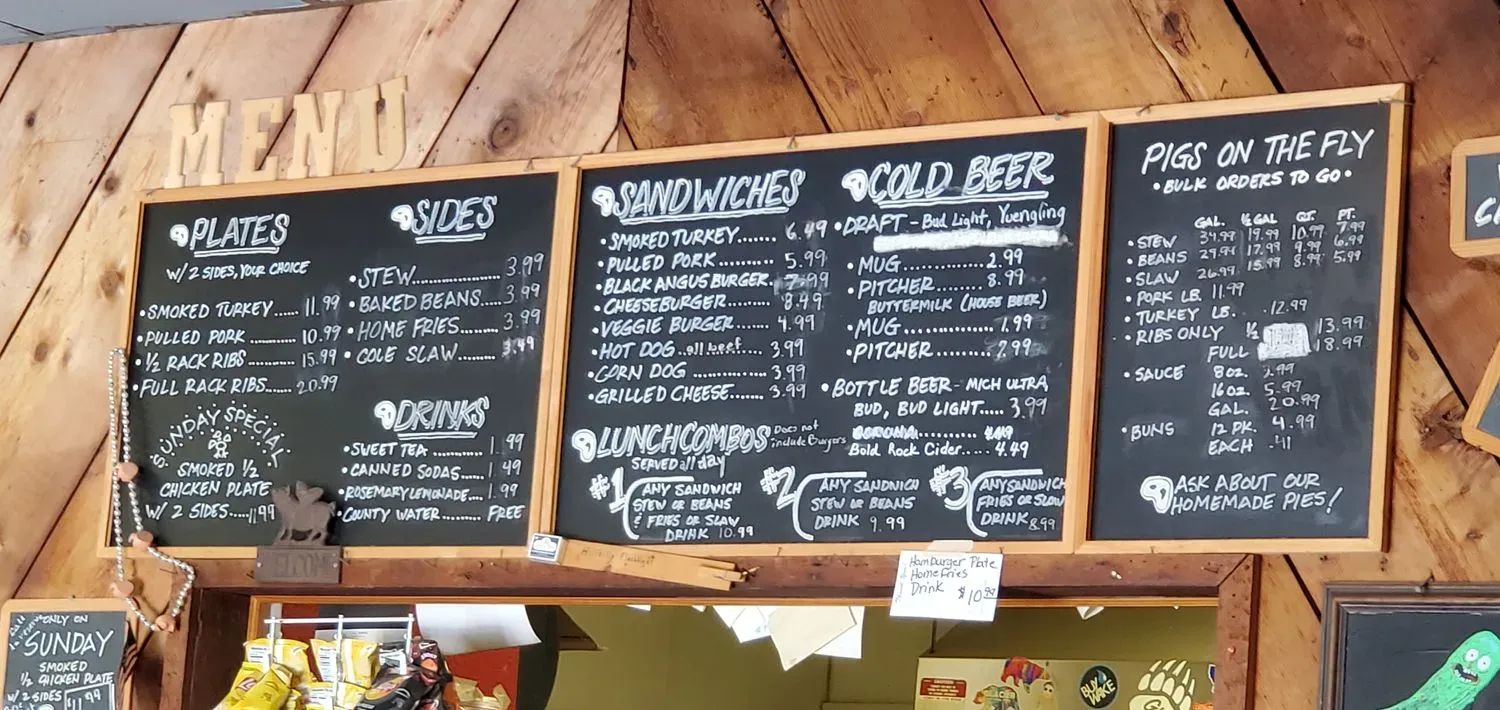 MENU
PLATES
W/ 2 SIDES, YOUR CHOICE
• SMOKED TURKEY..... 11.99
• PULLED PORK......... 10.99
• 1/2 RACK RIBS........ 15.99
• FULL RACK RIBS...... 20.99
SUNDAY SPECIAL
SMOKED 1/2
CHICKEN PLATE
W/ 2 SIDES.....11.99
SIDES
• STEW................ 3.99
• BAKED BEANS..... 3.99
• HOME FRIES........ 3.99
• COLE SLAW........ 3.49
DRINKS
• SWEET TEA........... 1.99
• CANNED SODAS..... 1.49
• ROSEMARY LEMONADE.... 1.99
• COUNTY WATER.......... FREE
SANDWICHES
• SMOKED TURKEY....... 6.49
• PULLED PORK.......... 5.99
• BLACK ANGUS BURGER.
• CHEESEBURGER........ 8.49
• VEGGIE BURGER...... 4.99
• HOT DOG..all beef.... 3.99
• CORN DOG............ 3.99
• GRILLED CHEESE....... 3.99
LUNCH COMBOS Does not
include Burgers
SERVED all day
#1 ANY SANDWICH
STEW OR BEANS
& FRIES OR SLAW
DRINK 10.99
#2 ANY SANDWICH
STEW OR BEANS
DRINK 9.99
#3 ANY SANDWICH
FRIES OR SLAW
DRINK 8.99
COLD BEER
• DRAFT - Bud Light, Yuengling
• MUG.............. 2.99
• PITCHER......... 8.99
BUTTERMILK (HOUSE BEER)
• MUG.............. 1.99
• PITCHER.......... 7.99
• BOTTLE BEER - MICH ULTRA,
BUD, BUD LIGHT..... 3.99
Bold Rock Cider.... 4.49
PIGS ON THE FLY
• BULK ORDERS TO GO •
GAL. 1/2 GAL QT. PT.
• STEW 34.99 19.99 10.99 7.99
• BEANS 29.99 17.99 9.99 6.99
• SLAW 26.99 15.99 8.99 5.99
• PORK LB. 11.99
• TURKEY LB. 12.99
• RIBS ONLY 1/2 13.99
FULL 18.99
• SAUCE 8 OZ. 3.99
16 OZ. 5.99
GAL. 20.99
• BUNS 12 PK. 4.99
EACH .41
ASK ABOUT OUR
HOMEMADE PIES!
Hamburger Plate
Home Fries
Drink $10.99
WELCOME
ONLY ON
SUNDAY
SMOKED
1/2 CHICKEN PLATE
W/ 2 SIDES $11.99
CAUTION
BUY WAKE